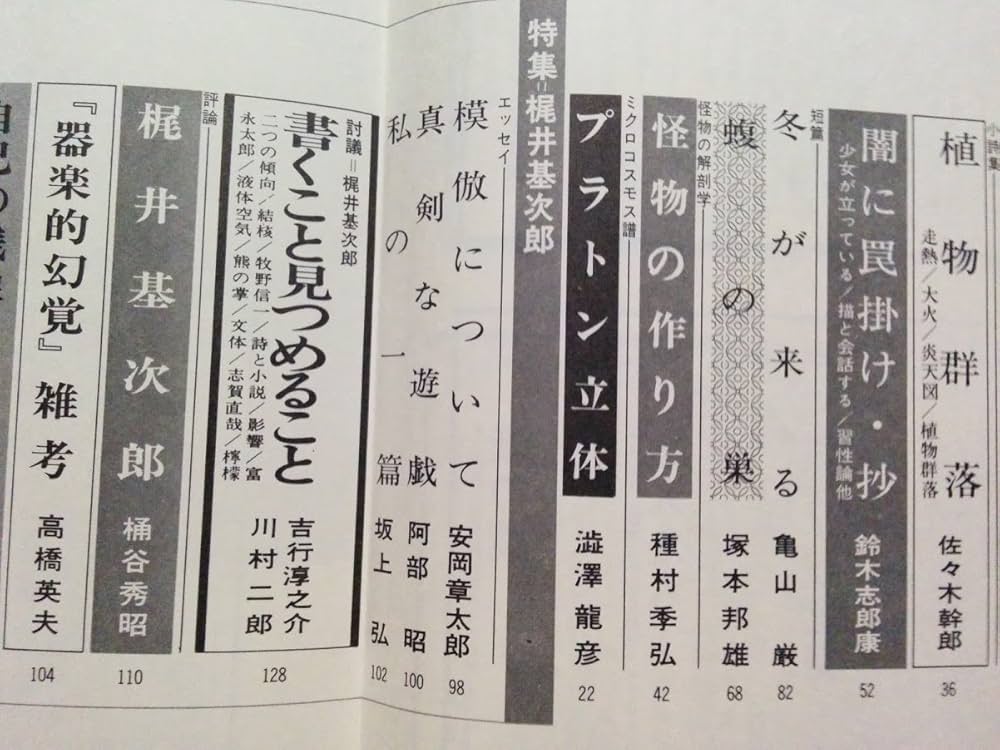 植物群落
走熱／大火／炎天図／植物群落
佐々木幹郎
36
闇に罠掛け・抄
少女が立っている／描と会話する／習性論他
鈴木志郎康
52
短篇
冬が来る
亀山巌
82
蝮の巣
塚本邦雄
68
怪物の解剖学
怪物の作り方
種村季弘
42
ミクロコスモス譜
プラトン立体
澁澤龍彦
22
特集=梶井基次郎
エッセイ
模倣について
安岡章太郎
98
真剣な遊戯
阿部昭
100
私の一篇
坂上弘
102
討議=梶井基次郎
書くこと見つめること
二つの傾向／結核／牧野信一／詩と小説／影響／富
永太郎／液体空気／熊の掌／文体／志賀直哉／檸檬
吉行淳之介
川村二郎
128
評論
梶井基次郎
桶谷秀昭
110
『器楽的幻覚』雑考
高橋英夫
104